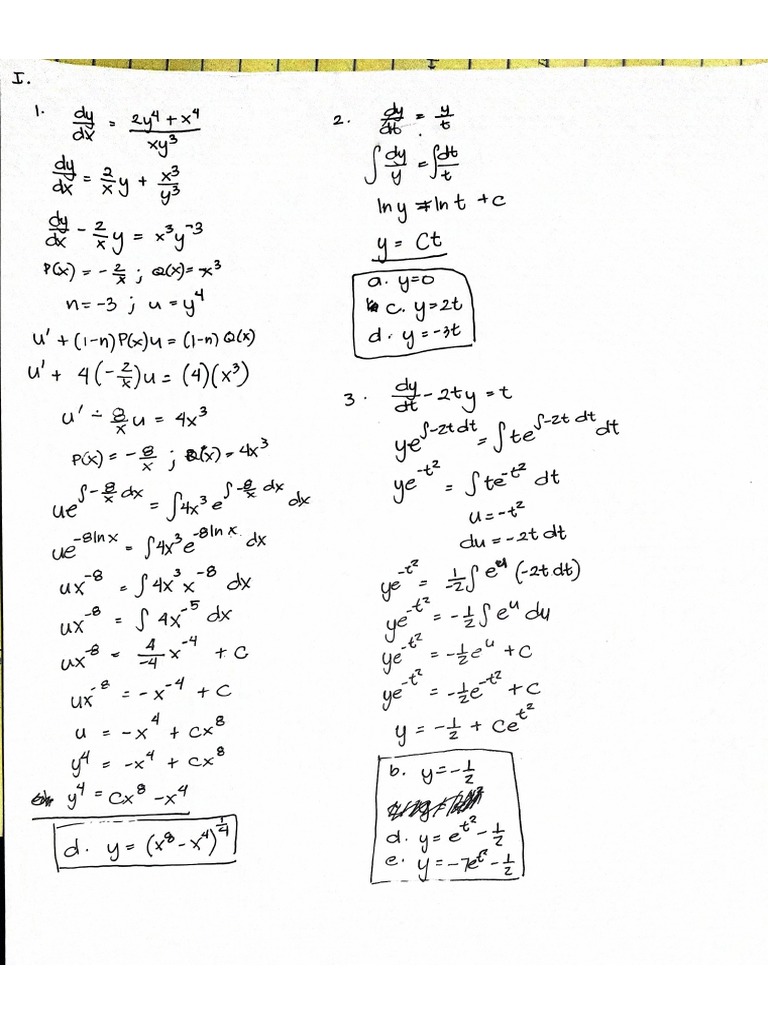 I.
1. dy/dx = (2y⁴ + x⁴)/(xy³)
dy/dx = 2/x y + x³/y³
dy/dx - 2/x y = x³y⁻³
P(x) = -2/x ; Q(x) = x³
n = -3 ; u = y⁴
u' + (1-n)P(x)u = (1-n)Q(x)
u' + 4(-2/x)u = (4)(x³)
u' - 8/x u = 4x³
P(x) = -8/x ; Q(x) = 4x³
ue^(∫-8/x dx) = ∫4x³e^(∫-8/x dx) dx
ue^(-8lnx) = ∫4x³e^(-8lnx) dx
ux⁻⁸ = ∫4x³x⁻⁸ dx
ux⁻⁸ = ∫4x⁻⁵ dx
ux⁻⁸ = 4/-4 x⁻⁴ + C
ux⁻⁸ = -x⁻⁴ + C
u = -x⁴ + Cx⁸
y⁴ = -x⁴ + Cx⁸
y⁴ = Cx⁸ - x⁴
d. y = (x⁸ - x⁴)^(1/4)
2. dy/dt = y/t
∫dy/y = ∫dt/t
ln y = ln t + C
y = Ct
a. y=0
c. y=2t
d. y=-3t
3. dy/dt - 2ty = t
ye^(∫-2t dt) = ∫te^(∫-2t dt) dt
ye^(-t²) = ∫te^(-t²) dt
u = -t²
du = -2t dt
ye^(-t²) = 1/-2 ∫e^u (-2t dt)
ye^(-t²) = -1/2 ∫e^u du
ye^(-t²) = -1/2 e^u + C
ye^(-t²) = -1/2 e^(-t²) + C
y = -1/2 + Ce^(t²)
b. y = -1/2
d. y = e^(t²) - 1/2
e. y = -7e^(t²) - 1/2